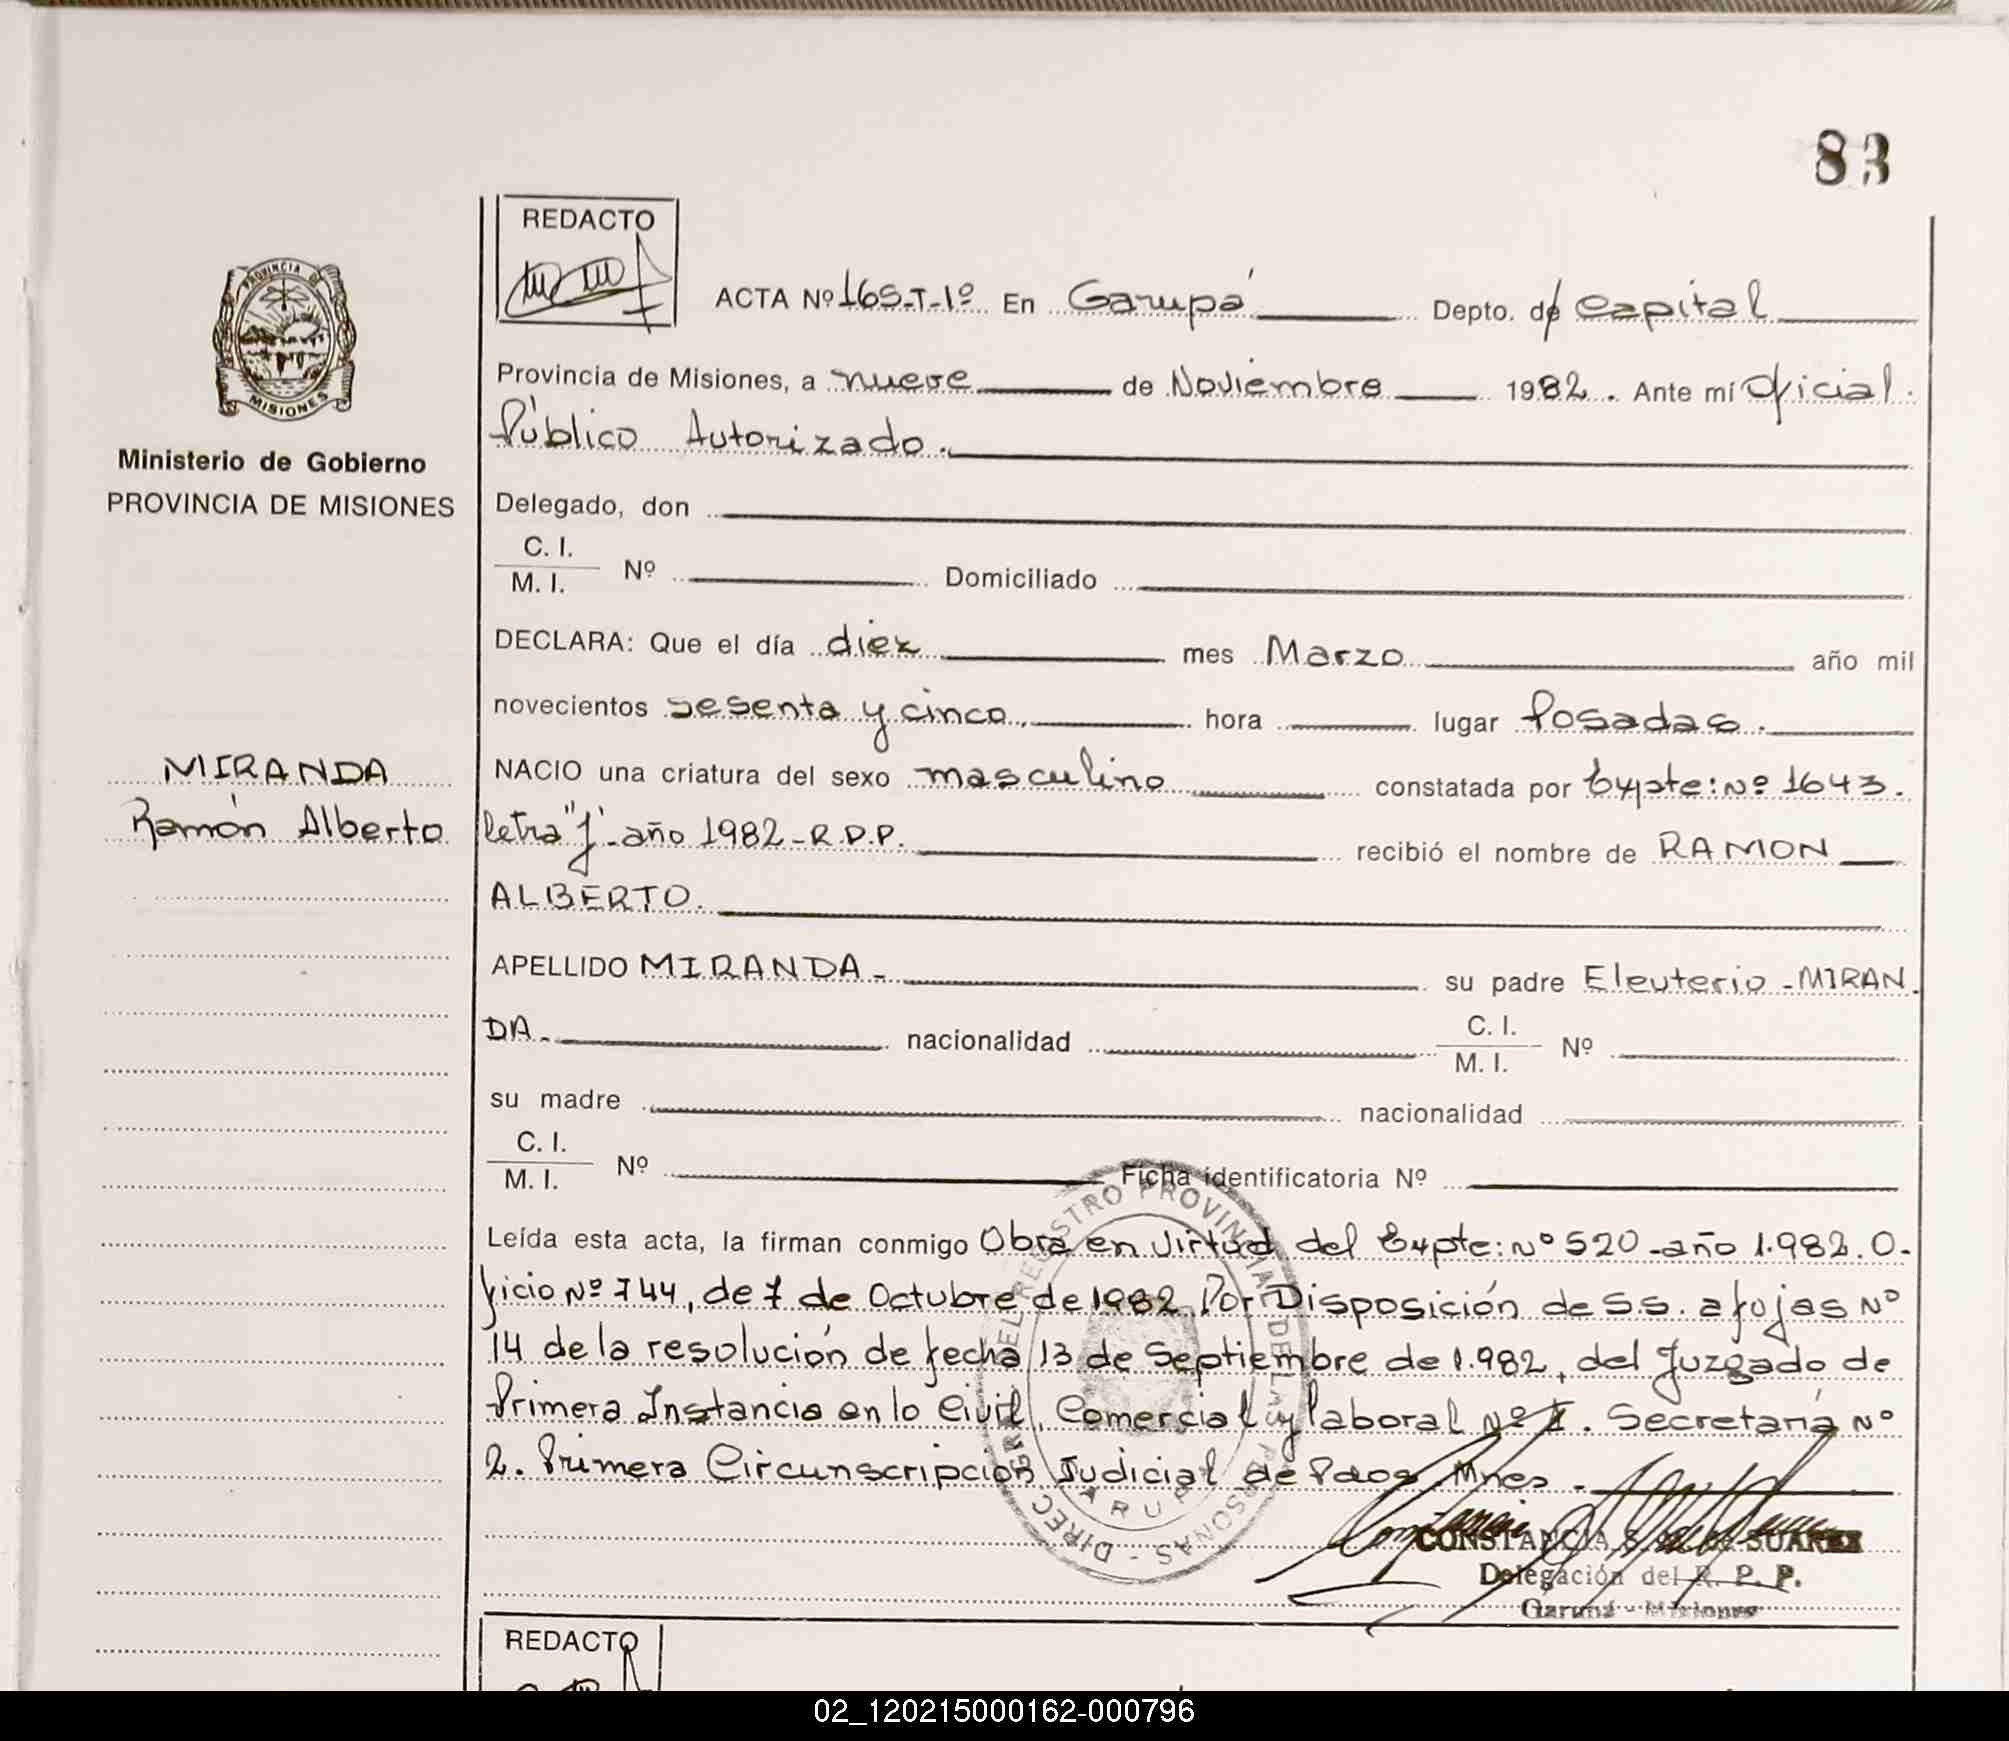 83
REDACTO
PROVINCIA DE
MISIONES
ACTA Nº 165-T-1º En Garupá Depto. de Capital
Ministerio de Gobierno
PROVINCIA DE MISIONES
Provincia de Misiones, a nueve de Noviembre 1982. Ante mí Oficial
Público Autorizado.
Delegado, don
C. I.
M. I. Nº Domiciliado
DECLARA: Que el día diez mes Marzo año mil
novecientos sesenta y cinco, hora lugar Posadas.
MIRANDA
Ramón Alberto
NACIO una criatura del sexo masculino constatada por Expte: Nº 1643.
letra "J" año 1982-R.P.P. recibió el nombre de RAMON
ALBERTO.
APELLIDO MIRANDA- su padre Eleuterio -MIRAN
DA- nacionalidad C. I.
M. I. Nº
su madre nacionalidad
C. I.
M. I. Nº Ficha identificatoria Nº
Leída esta acta, la firman conmigo Obra en virtud del Expte: Nº 520-año 1.982. O-
ficio Nº 744, de 7 de Octubre de 1982. Por Disposición de S.S. a fojas Nº
14 de la resolución de fecha 13 de Septiembre de 1.982, del Juzgado de
Primera Instancia en lo Civil, Comercial y laboral Nº 1. Secretaría Nº
2. Primera Circunscripción Judicial de Pdas. Mnes.
CONSTANCIA S. de SUAREZ
Delegación del R. P. P.
Garupá - Misiones
REDACTO
02_120215000162-000796